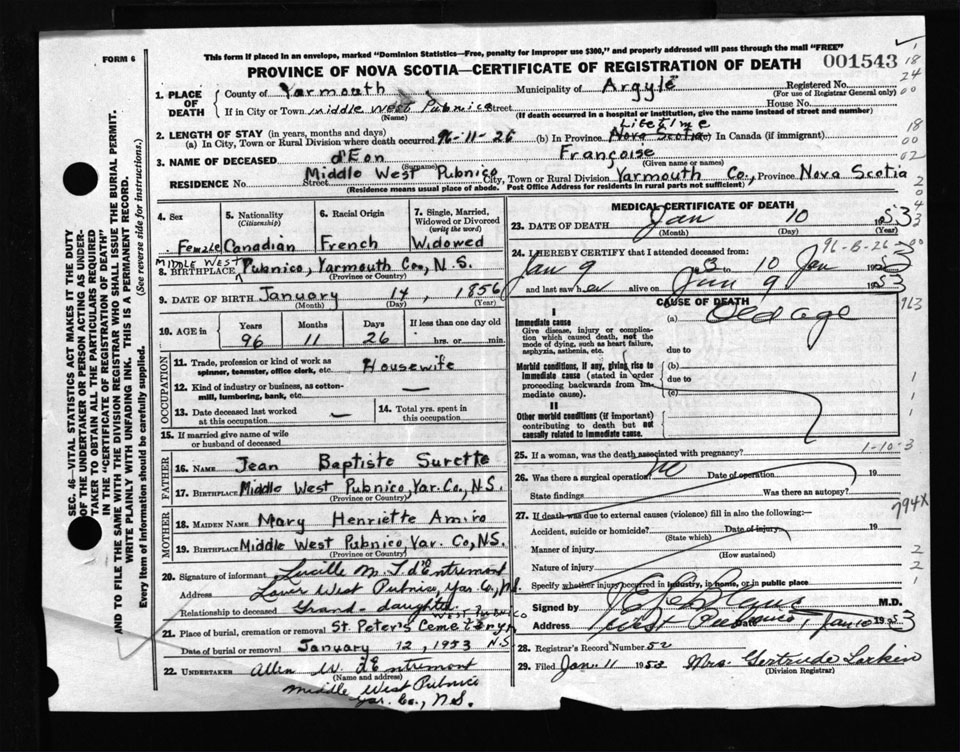 This form if placed in an envelope, marked "Dominion Statistics—Free, penalty for improper use $300," and properly addressed will pass through the mail "FREE"
FORM 6
PROVINCE OF NOVA SCOTIA—CERTIFICATE OF REGISTRATION OF DEATH
001543
1. PLACE OF DEATH
County of Yarmouth Municipality of Argyle Registered No.
(For use of Registrar General only)
If in City or Town Middle West Pubnico Street House No.
(Name) (If death occurred in a hospital or institution, give the name instead of street and number)
2. LENGTH OF STAY (in years, months and days)
(a) In City, Town or Rural Division where death occurred 96-11-26 (b) In Province Lifetime Nova Scotia In Canada (if immigrant)
3. NAME OF DECEASED d'Eon Françoise
(Surname) (Given name or names)
RESIDENCE No. Street Middle West Pubnico City, Town or Rural Division Yarmouth Co., Province Nova Scotia
(Residence means usual place of abode. Post Office Address for residents in rural parts not sufficient)
4. Sex Female
5. Nationality (Citizenship) Canadian
6. Racial Origin French
7. Single, Married, Widowed or Divorced (write the word) Widowed
MIDDLE WEST
8. BIRTHPLACE Pubnico, Yarmouth Co., N.S.
(Province or Country)
9. DATE OF BIRTH January 14, 1856
(Month) (Day) (Year)
10. AGE in Years Months Days If less than one day old
96 11 26 hrs. or min.
OCCUPATION
11. Trade, profession or kind of work as spinner, teamster, office clerk, etc. Housewife
12. Kind of industry or business, as cotton-mill, lumbering, bank, etc. —
13. Date deceased last worked at this occupation —
14. Total yrs. spent in this occupation
15. If married give name of wife or husband of deceased
FATHER
16. NAME Jean Baptiste Surette
17. BIRTHPLACE Middle West Pubnico, Yar. Co., N.S.
(Province or Country)
MOTHER
18. MAIDEN NAME Mary Henriette Amiro
19. BIRTHPLACE Middle West Pubnico, Yar. Co, N.S.
(Province or Country)
20. Signature of informant Lucille M. L. d'Entremont
Address Lower West Pubnico, Yar. Co., N.S.
Relationship to deceased Grand-daughter
West Pubnico
21. Place of burial, cremation or removal St. Peter's Cemetery
N.S.
Date of burial or removal January 12, 1953
22. UNDERTAKER Allen W. d'Entremont
(Name and address)
Middle West Pubnico
Yar. Co., N.S.
MEDICAL CERTIFICATE OF DEATH
23. DATE OF DEATH Jan 10 1953
(Month) (Day)
96-8-26
24. I HEREBY CERTIFY that I attended deceased from
Jan 9 53 to 10 Jan 1953
and last saw her alive on Jan 9 1953
CAUSE OF DEATH
I
Immediate cause
Give disease, injury or complication which caused death, not the mode of dying, such as heart failure, asphyxia, asthenia, etc.
(a) Old age
due to
Morbid conditions, if any, giving rise to immediate cause (stated in order proceeding backwards from immediate cause).
(b)
due to
(c)
II
Other morbid conditions (if important) contributing to death but not causally related to immediate cause.
25. If a woman, was the death associated with pregnancy?
1-10-3
26. Was there a surgical operation? No Date of operation 19
State findings Was there an autopsy?
27. If death was due to external causes (violence) fill in also the following:—
794X
Accident, suicide or homicide? Date of injury 19
(State which)
Manner of injury
(How sustained)
Nature of injury
Specify whether injury occurred in industry, in home, or in public place
Signed by M.D.
Address West Pubnico Jan 10 1953
28. Registrar's Record Number 52
29. Filed Jan. 11 1953 Mrs. Gertrude Larkin
(Division Registrar)
SEC. 46—VITAL STATISTICS ACT MAKES IT THE DUTY
OF THE UNDERTAKER OR PERSON ACTING AS UNDER-
TAKER TO OBTAIN ALL THE PARTICULARS REQUIRED
IN THE "CERTIFICATE OF REGISTRATION OF DEATH"
AND TO FILE THE SAME WITH THE DIVISION REGISTRAR WHO SHALL ISSUE THE BURIAL PERMIT.
WRITE PLAINLY WITH UNFADING INK. THIS IS A PERMANENT RECORD.
Every item of information should be carefully supplied. (See reverse side for instructions.)